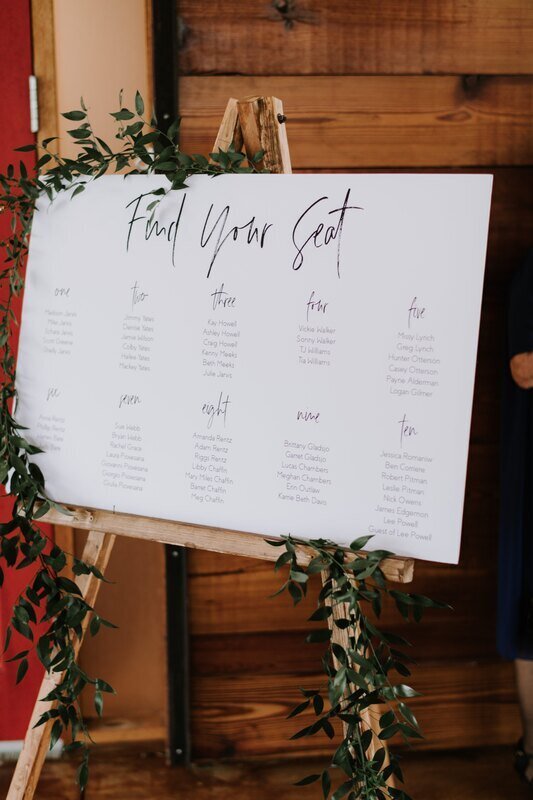 Find Your Seat
one
Madison Jarvis
Mike Jarvis
Scott Greene
Shelly Jarvis
two
Jimmy Yates
Denise Yates
Jamie Wilson
Colby Yates
Hailee Yates
Mackey Yates
three
Kay Howell
Ashley Howell
Craig Howell
Kenny Meeks
Beth Meeks
Julie Jarvis
four
Vickie Walker
Sonny Walker
TJ Williams
Tia Williams
five
Missy Lynch
Greg Lynch
Hunter Otterson
Casey Otterson
Payne Alderman
Logan Gilmer
six
Rentz
Phillip Rentz
Bare
Bare
seven
Sue Webb
Bryan Webb
Rachel Grace
Laura
Giovanni
Giorgio
Giulia
eight
Amanda Rentz
Adam Rentz
Riggs Rentz
Libby Chaffin
Mary Miles Chaffin
Barret Chaffin
Meg Chaffin
nine
Brittany Gladsjo
Garret Gladsjo
Lucas Chambers
Meghan Chambers
Erin Outlaw
Karrie Beth Davis
ten
Jessica Romanow
Ben Comere
Robert Pitman
Leslie Pitman
Nick Owens
James Edgemon
Lee Powell
Guest of Lee Powell